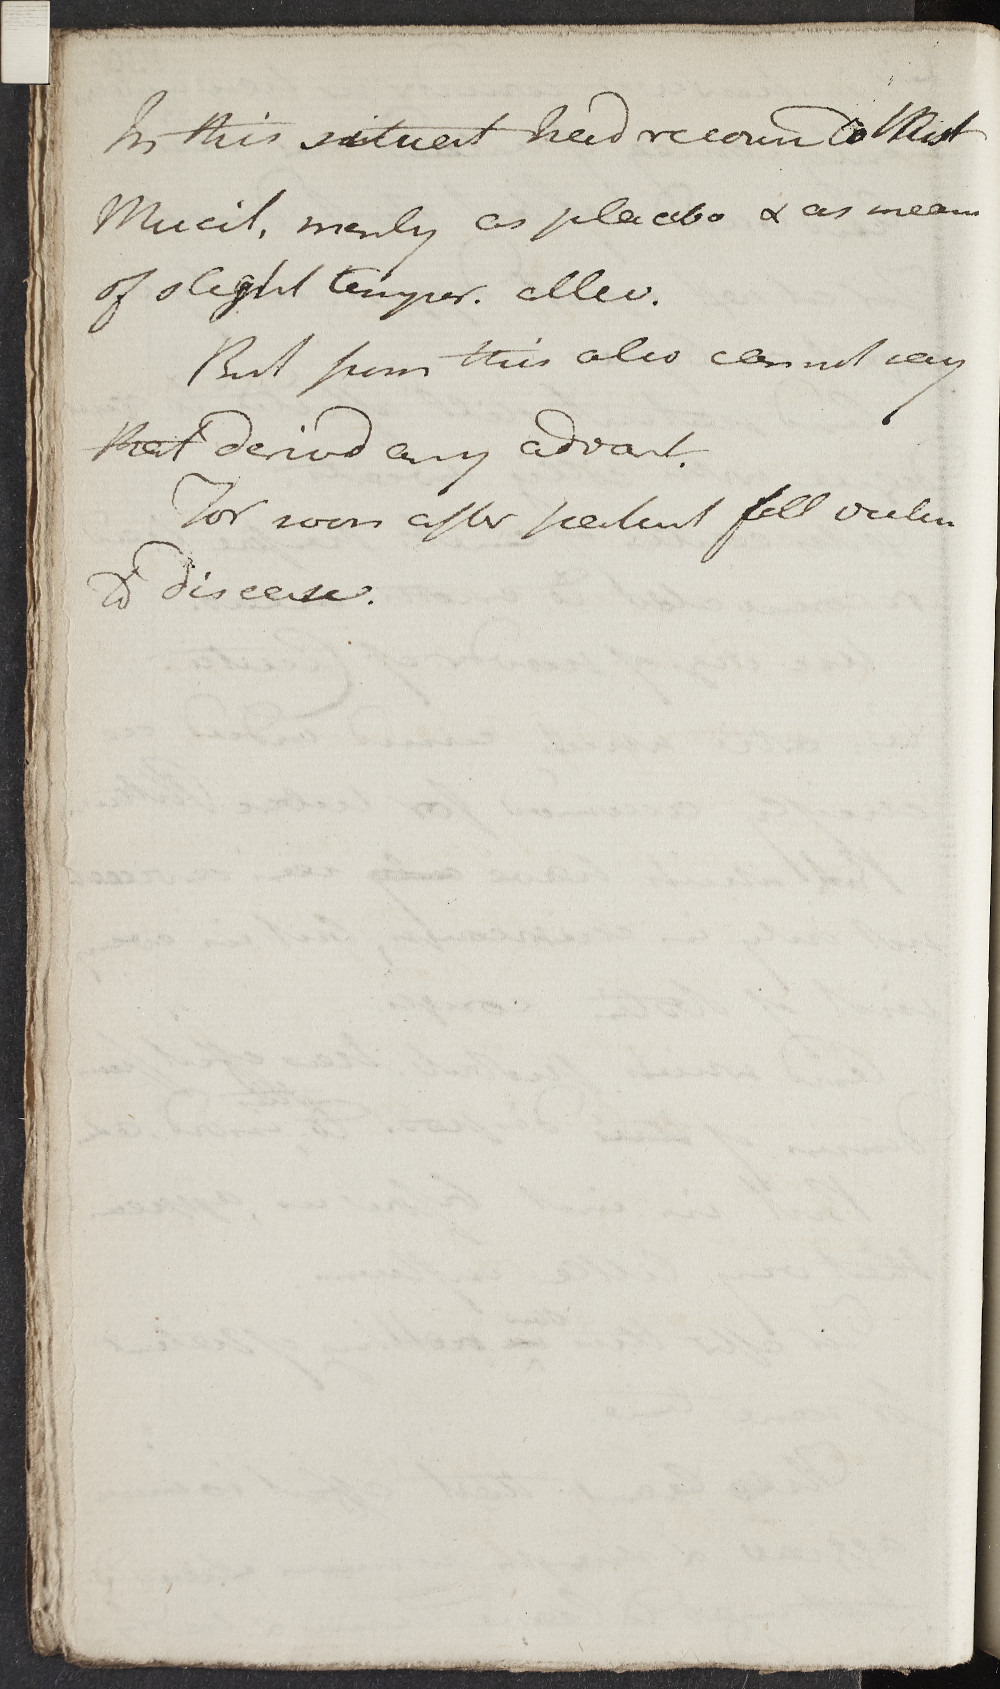 In this situat had recour to Mist
Mucil, merely as placebo & as mean
of slight tempor. allev.
But from this also cannot say
that derived any advant.
For soon after patient fell victim
to disease.